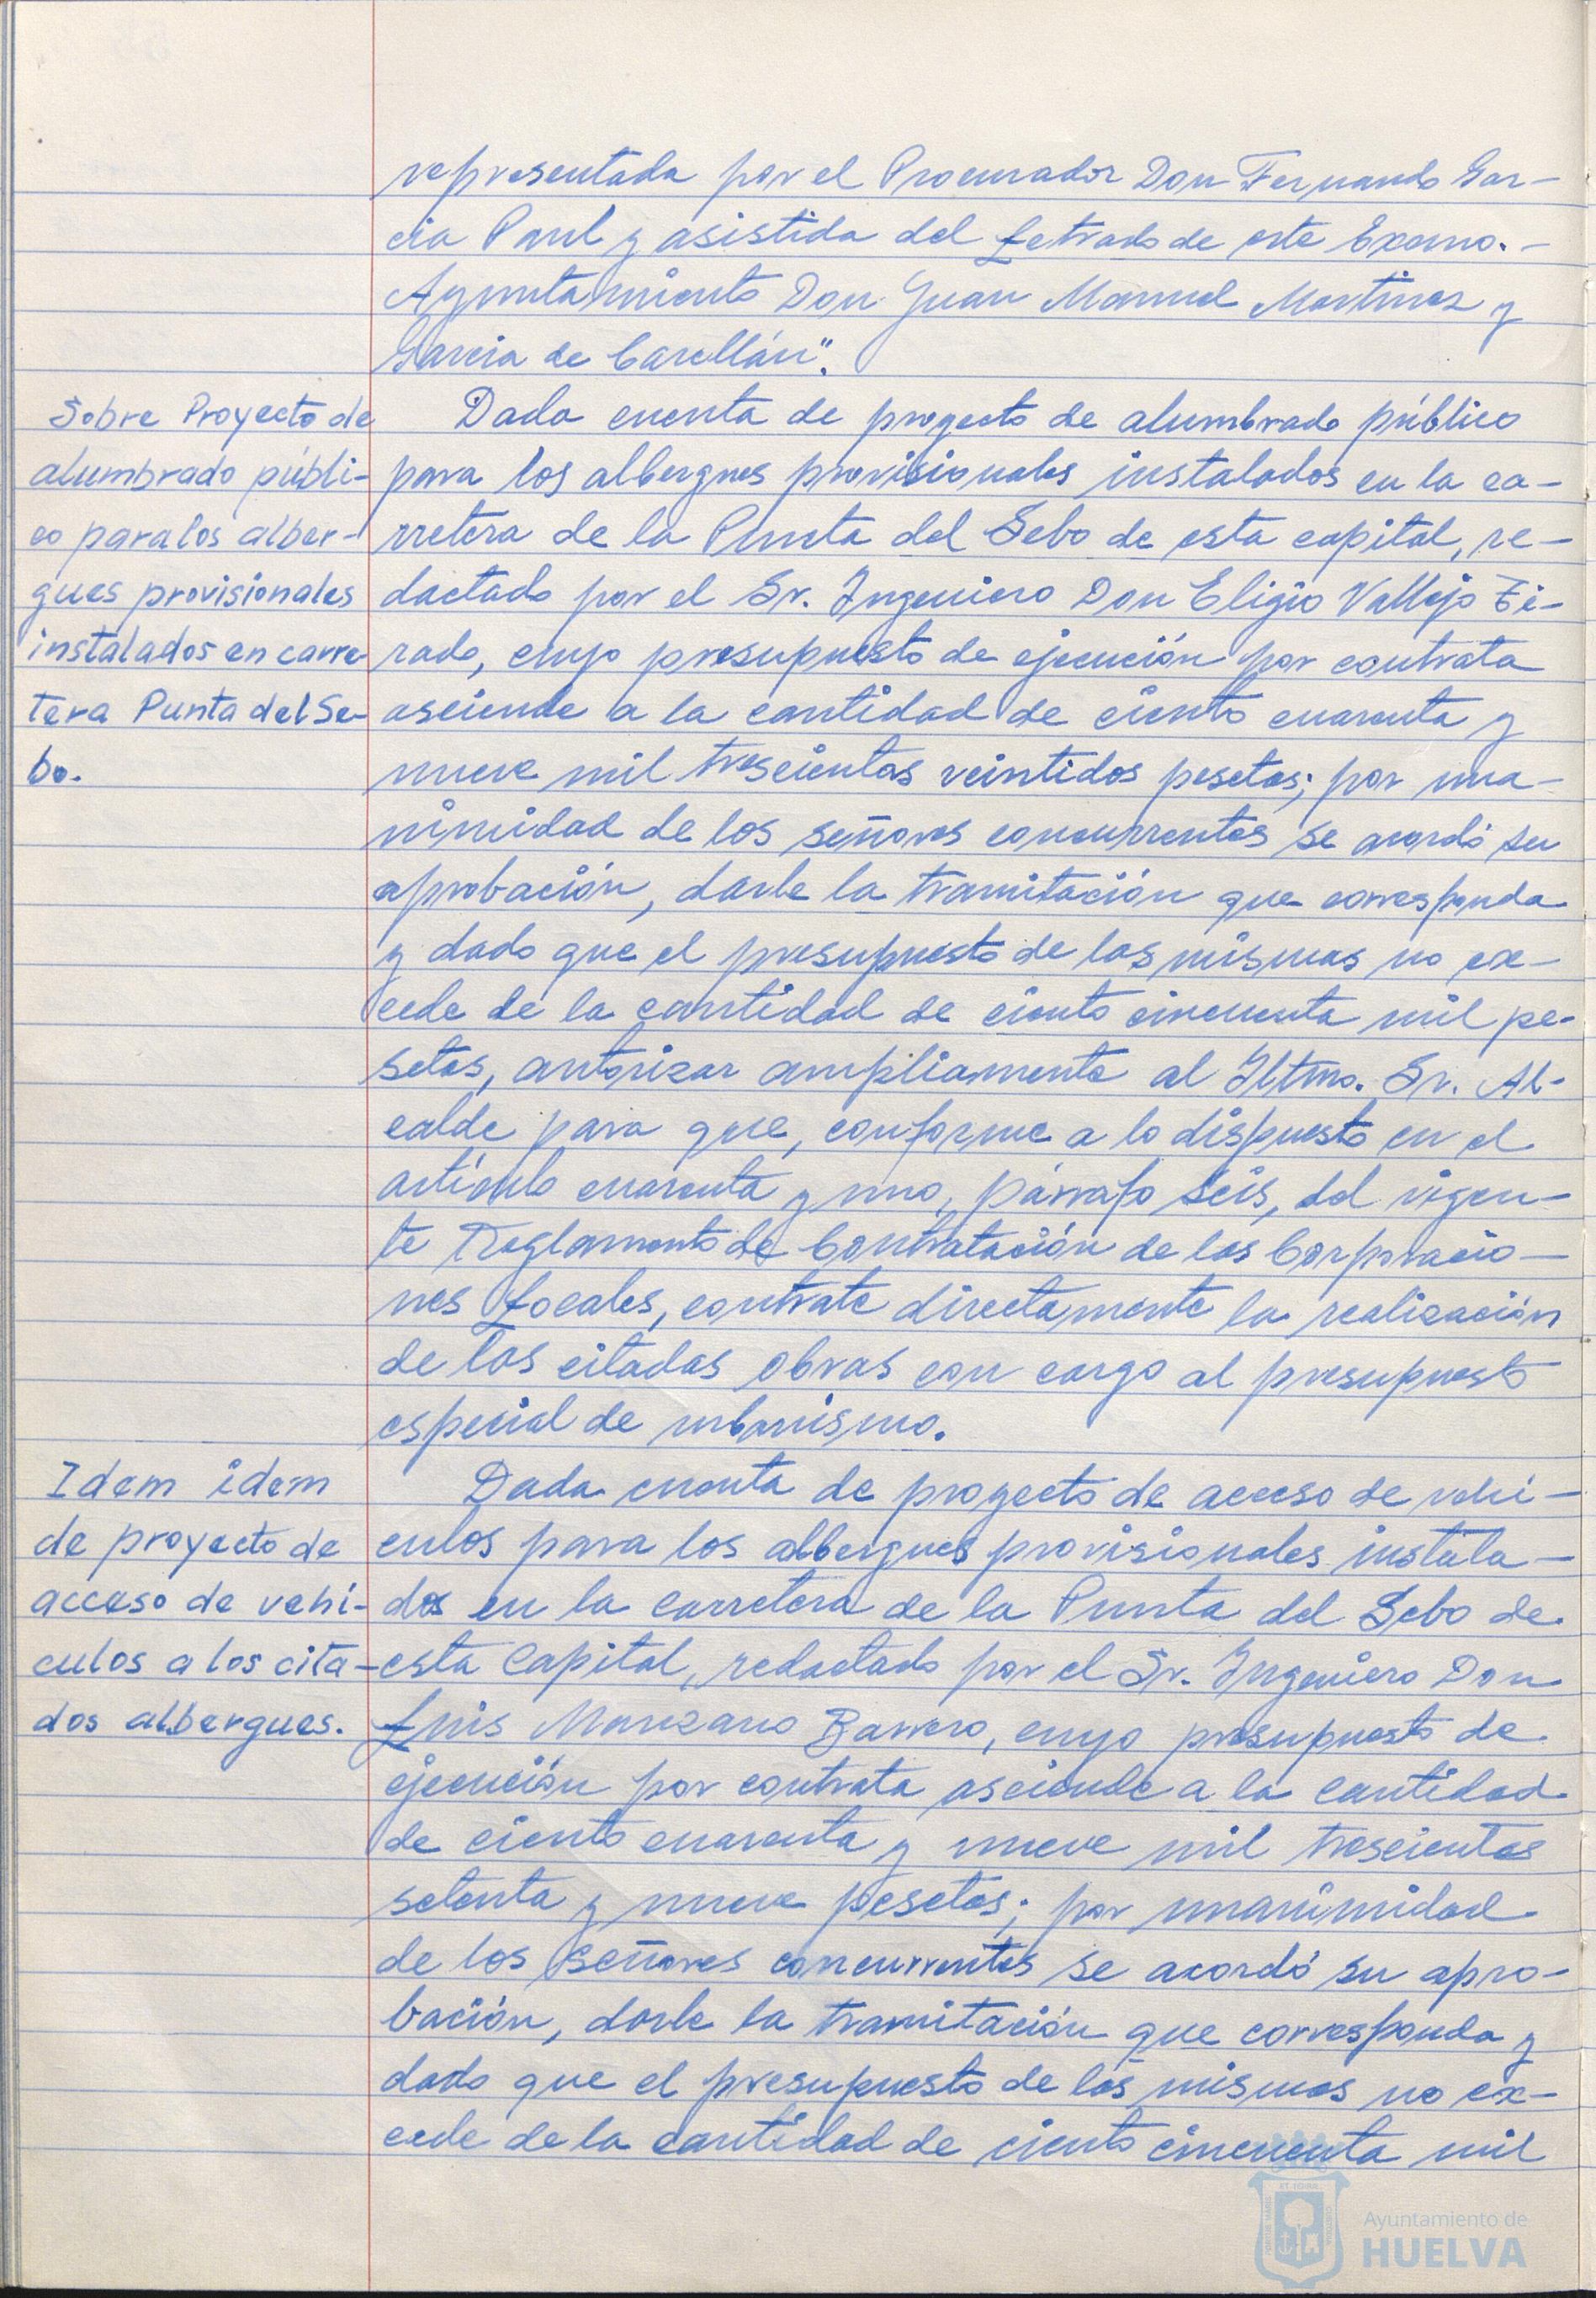 representada por el Procurador Don Fernando Gar-
cia Paul y asistida del Letrado de este Excmo. -
Ayuntamiento Don Juan Manuel Martinez y
Garcia de Carellán".
Sobre Proyecto de
alumbrado públi-
co para los alber-
gues provisionales
instalados en carre-
tera Punta del Se-
bo.
Dada cuenta de proyecto de alumbrado público
para los albergues provisionales instalados en la ca-
rretera de la Punta del Sebo de esta capital, re-
dactado por el Sr. Ingeniero Don Eligio Vallejo Ti-
rado, cuyo presupuesto de ejecución por contrata
asciende a la cantidad de ciento cuarenta y
nueve mil trescientas veintidos pesetas; por una-
nimidad de los señores concurrentes se acordó su
aprobación, darle la tramitación que corresponda
y dado que el presupuesto de las mismas no ex-
cede de la cantidad de ciento cincuenta mil pe-
setas, autorizar ampliamente al Iltmo. Sr. Al-
calde para que, conforme a lo dispuesto en el
artículo cuarenta y uno, párrafo seis, del vigen-
te Reglamento de Contratación de las Corporacio-
nes Locales, contrate directamente la realización
de las citadas obras con cargo al presupuesto
especial de urbanismo.
Idem idem
de proyecto de
acceso de vehí-
culos a los cita-
dos albergues.
Dada cuenta de proyecto de acceso de vehí-
culos para los albergues provisionales instala-
dos en la carretera de la Punta del Sebo de
esta Capital, redactado por el Sr. Ingeniero Don
Luis Manzano Barrero, cuyo presupuesto de
ejecución por contrata asciende a la cantidad
de ciento cuarenta y nueve mil trescientas
setenta y nueve pesetas; por unanimidad
de los señores concurrentes se acordó su apro-
bación, darle la tramitación que corresponda y
dado que el presupuesto de las mismas no ex-
cede de la cantidad de ciento cincuenta mil
Ayuntamiento de
HUELVA